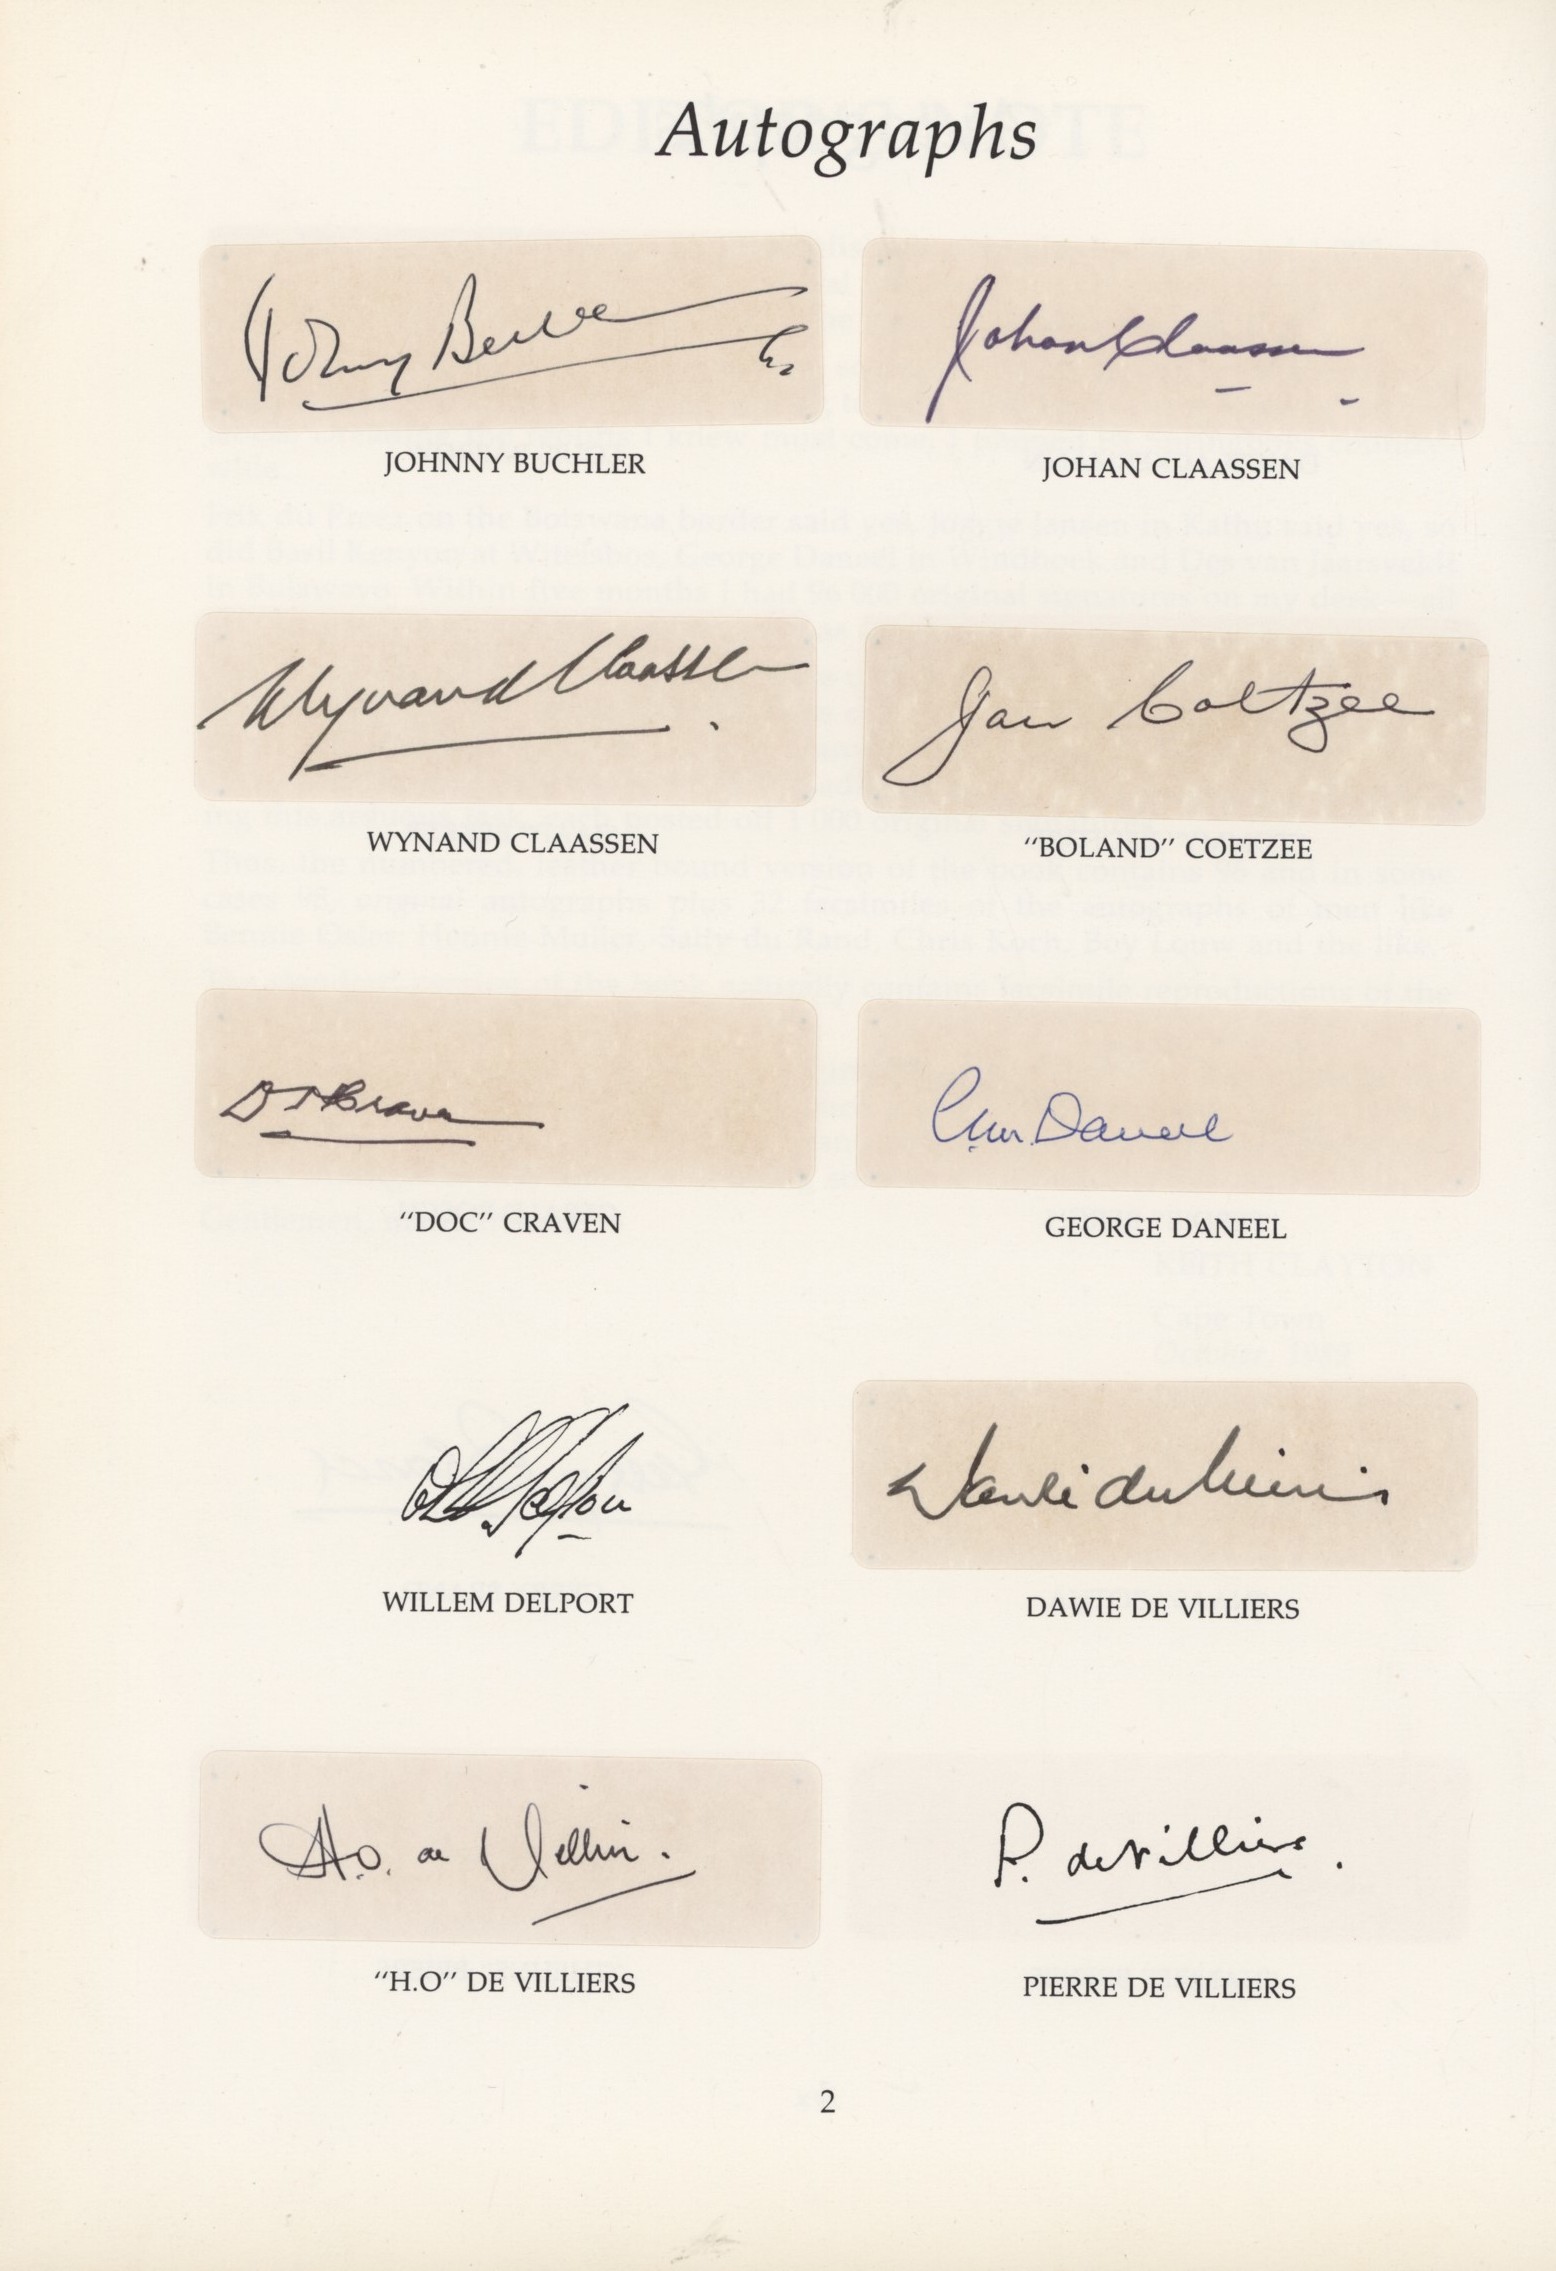 Autographs
Johnny Buchler
Johan Claassen
JOHNNY BUCHLER
JOHAN CLAASSEN
Wynand Claassen
Jan Coetzee
WYNAND CLAASSEN
"BOLAND" COETZEE
D H Craven
Daneel
"DOC" CRAVEN
GEORGE DANEEL
Dawie de Villiers
WILLEM DELPORT
DAWIE DE VILLIERS
H.O. de Villiers.
P. de Villiers.
"H.O" DE VILLIERS
PIERRE DE VILLIERS
2